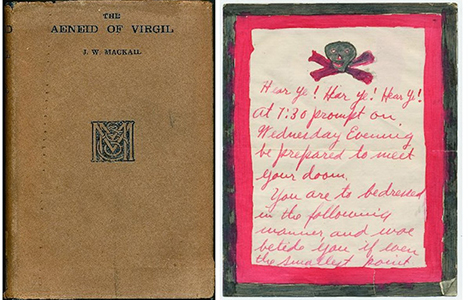 THE
AENEID OF VIRGIL
J. W. MACKAIL
Hear Ye! Hear Ye! Hear Ye!
At 7:30 prompt on
Wednesday Evening
be prepared to meet
your doom.
You are to be dressed
in the following
manner and woe
betide you if even
the smallest point